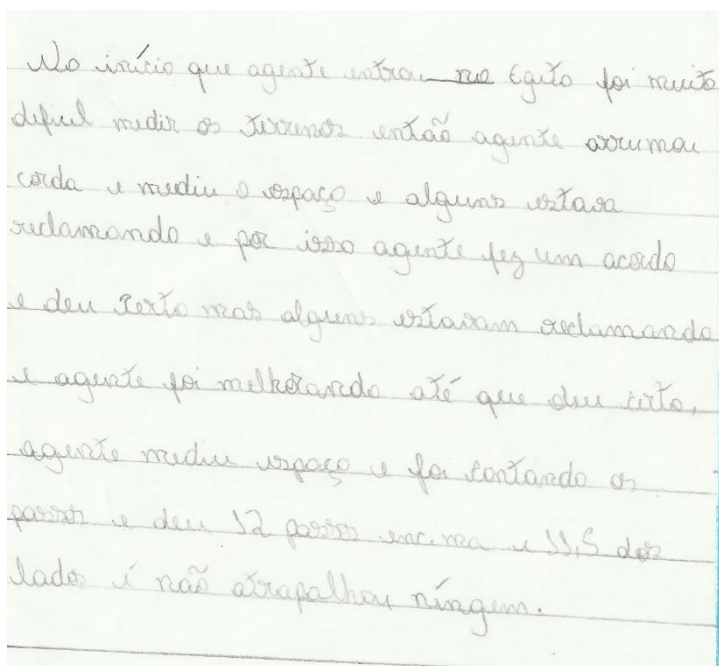 No início que agente entrou no Egito foi muito
defícul medir os terrenos então agente arrumou
corda e mediu o espaço e alguns estava
reclamando e por isso agente fez um acordo
e deu certo mas alguns estavam reclamando
e agente foi melhorando até que deu certo,
agente mediu espaço e foi contando os
passos e deu 12 passos encima e 11,5 dos
lados i não atrapalhou níngem.